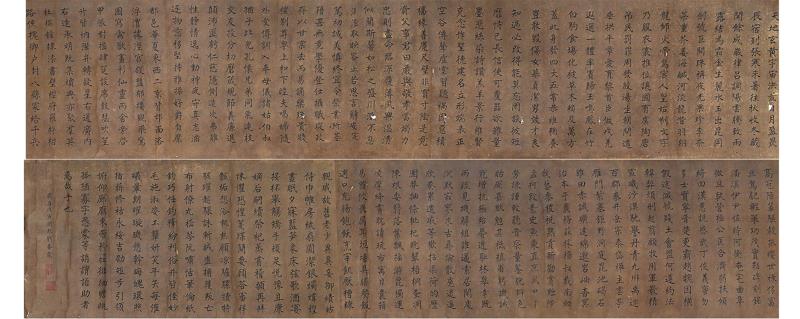 天地玄黃宇宙洪荒日月盈昃
辰宿列張寒來暑往秋收冬藏
閏餘成歲律呂調陽雲騰致雨
露結為霜金生麗水玉出崑岡
劍號巨闕珠稱夜光果珍李柰
菜重芥薑海鹹河淡鱗潛羽翔
龍師火帝鳥官人皇始制文字
乃服衣裳推位讓國有虞陶唐
弔民伐罪周發殷湯坐朝問道
垂拱平章愛育黎首臣伏戎羌
遐邇一體率賓歸王鳴鳳在竹
白駒食場化被草木賴及萬方
蓋此身髮四大五常恭惟鞠養
豈敢毀傷女慕貞絜男效才良
知過必改得能莫忘罔談彼短
靡恃己長信使可覆器欲難量
墨悲絲染詩讚羔羊景行維賢
克念作聖德建名立形端表正
空谷傳聲虛堂習聽禍因惡積
福緣善慶尺璧非寶寸陰是競
資父事君曰嚴與敬孝當竭力
忠則盡命臨深履薄夙興溫凊
似蘭斯馨如松之盛川流不息
淵澄取映容止若思言辭安定
篤初誠美慎終宜令榮業所基
籍甚無竟學優登仕攝職從政
存以甘棠去而益詠樂殊貴賤
禮別尊卑上和下睦夫唱婦隨
外受傅訓入奉母儀諸姑伯叔
猶子比兒孔懷兄弟同氣連枝
交友投分切磨箴規節義廉退
顛沛匪虧仁慈隱惻造次弗離
性靜情逸心動神疲守真志滿
逐物意移堅持雅操好爵自縻
都邑華夏東西二京背邙面洛
浮渭據涇宮殿盤鬱樓觀飛驚
圖寫禽獸畫彩仙靈丙舍傍啟
甲帳對楹肆筵設席鼓瑟吹笙
升階納陛弁轉疑星右通廣內
左達承明既集墳典亦聚群英
杜稾鍾隸漆書壁經府羅將相
路俠槐卿戶封八縣家給千兵
高冠陪輦驅轂振纓世祿侈富
車駕肥輕策功茂實勒碑刻銘
磻溪伊尹佐時阿衡奄宅曲阜
微旦孰營桓公匡合濟弱扶傾
綺迴漢惠說感武丁俊乂密勿
多士寔寧晉楚更霸趙魏困橫
假途滅虢踐土會盟何遵約法
韓弊煩刑起翦頗牧用軍最精
宣威沙漠馳譽丹青九州禹跡
百郡秦并岳宗泰岱禪主云亭
雁門紫塞鉅野洞庭昆池碣石
雞田赤城曠遠綿邈巖岫杳冥
治本於農務茲稼穡俶載南畝
我藝黍稷稅熟貢新勸賞黜陟
孟軻敦素史魚秉直庶幾中庸
勞謙謹敕聆音察理鑒貌辨色
貽厥嘉猷勉其祗植省躬譏誡
寵增抗極殆辱近恥林皋幸即
兩疏見機解組誰逼索居閒處
沉默寂寥求古尋論散慮逍遙
欣奏累遣慼謝歡招渠荷的歷
園莽抽條枇杷晚翠梧桐早凋
陳根委翳落葉飄颻游鵾獨運
凌摩絳霄耽讀翫市寓目囊箱
易輶攸畏屬耳垣牆具膳飡飯
適口充腸飽飫烹宰飢厭糟糠
親戚故舊老少異糧妾御績紡
侍巾帷房紈扇圓潔銀燭煒煌
晝眠夕寐藍筍象床弦歌酒讌
接杯舉觴矯手頓足悅豫且康
嫡後嗣續祭祀烝嘗稽顙再拜
悚懼恐惶牋牒簡要顧答審詳
骸垢想浴執熱願涼驢騾犢特
駭躍超驤誅斬賊盜捕獲叛亡
布射僚丸嵇琴阮嘯恬筆倫紙
鈞巧任釣釋紛利俗並皆佳妙
毛施淑姿工顰妍笑年矢每催
曦暉朗曜璇璣懸斡晦魄環照
指薪修祜永綏吉劭矩步引領
俯仰廊廟束帶矜莊徘徊瞻眺
孤陋寡聞愚蒙等誚謂語助者
焉哉乎也